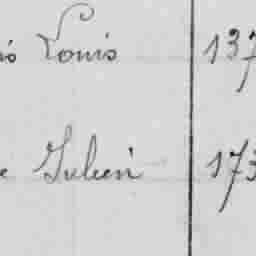 is Louis 137
e Julien 173